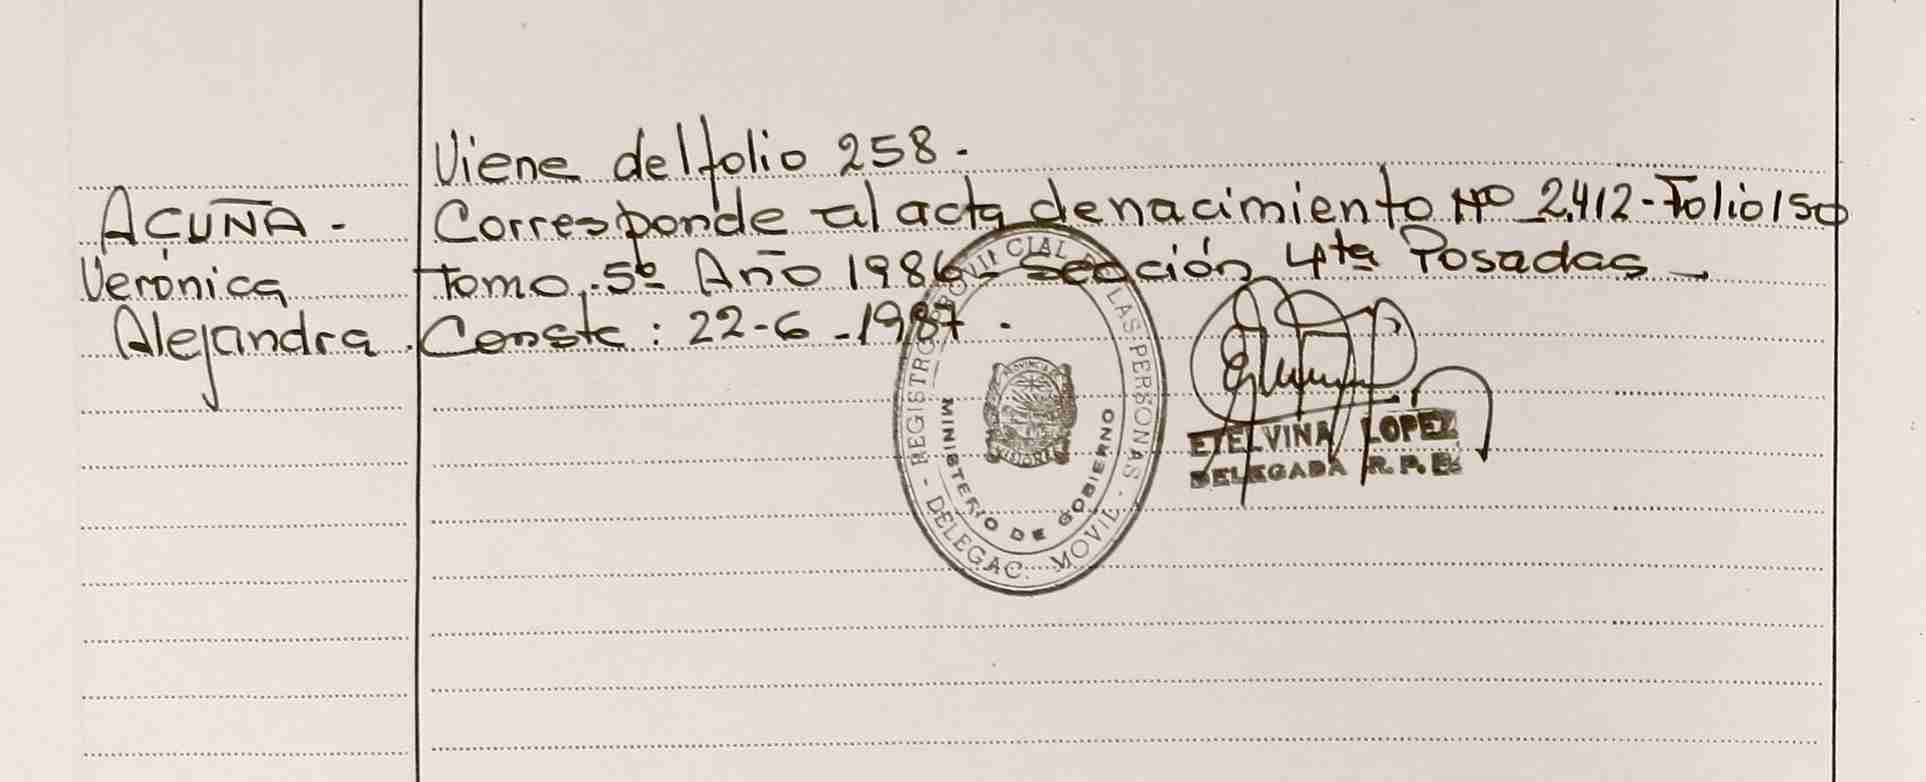 Viene del folio 258.
ACUÑA - Corresponde al acta de nacimiento Nº 2.412 - Folio 150
Verónica tomo 5º Año 1986 - Sección 4ta Posadas -
Alejandra. Conste: 22-6-1987.
REGISTRO PROVINCIAL DE LAS PERSONAS
- DELEGAC. MOVIL -
MINISTERIO DE GOBIERNO
ETELVINA LOPEZ
DELEGADA R. P. P.